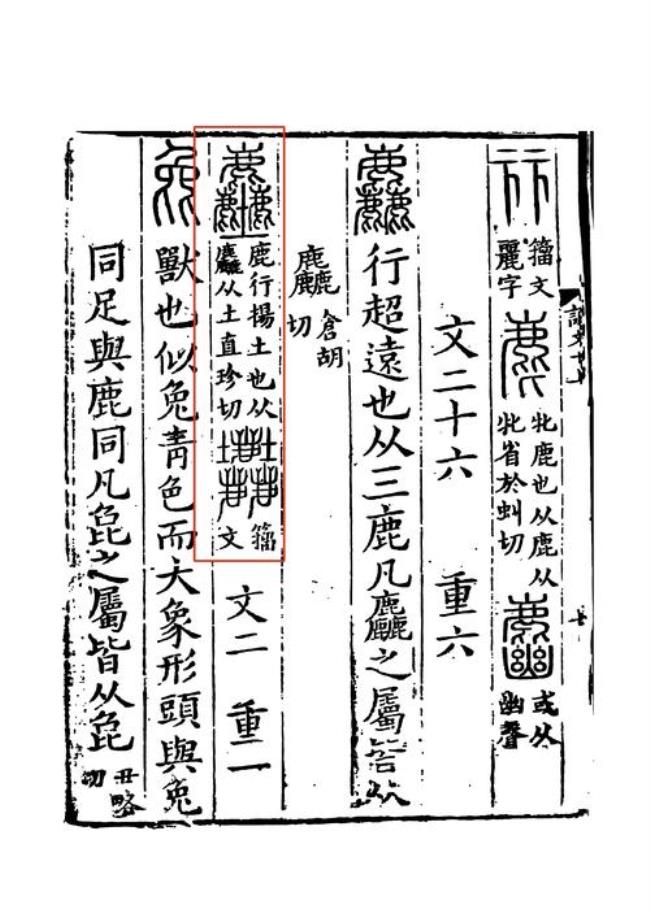 籒文麗字 麀 牝鹿也从鹿从牝省於虯切 或从幽聲
文二十六 重六
麤 行超遠也从三鹿凡麤之屬皆从
麤 倉胡切
塵 鹿行揚土也从麤从土直珍切 籒文 文二 重一
㲋 獸也似兔青色而大象形頭與兔
同足與鹿同凡㲋之屬皆从㲋 丑略切